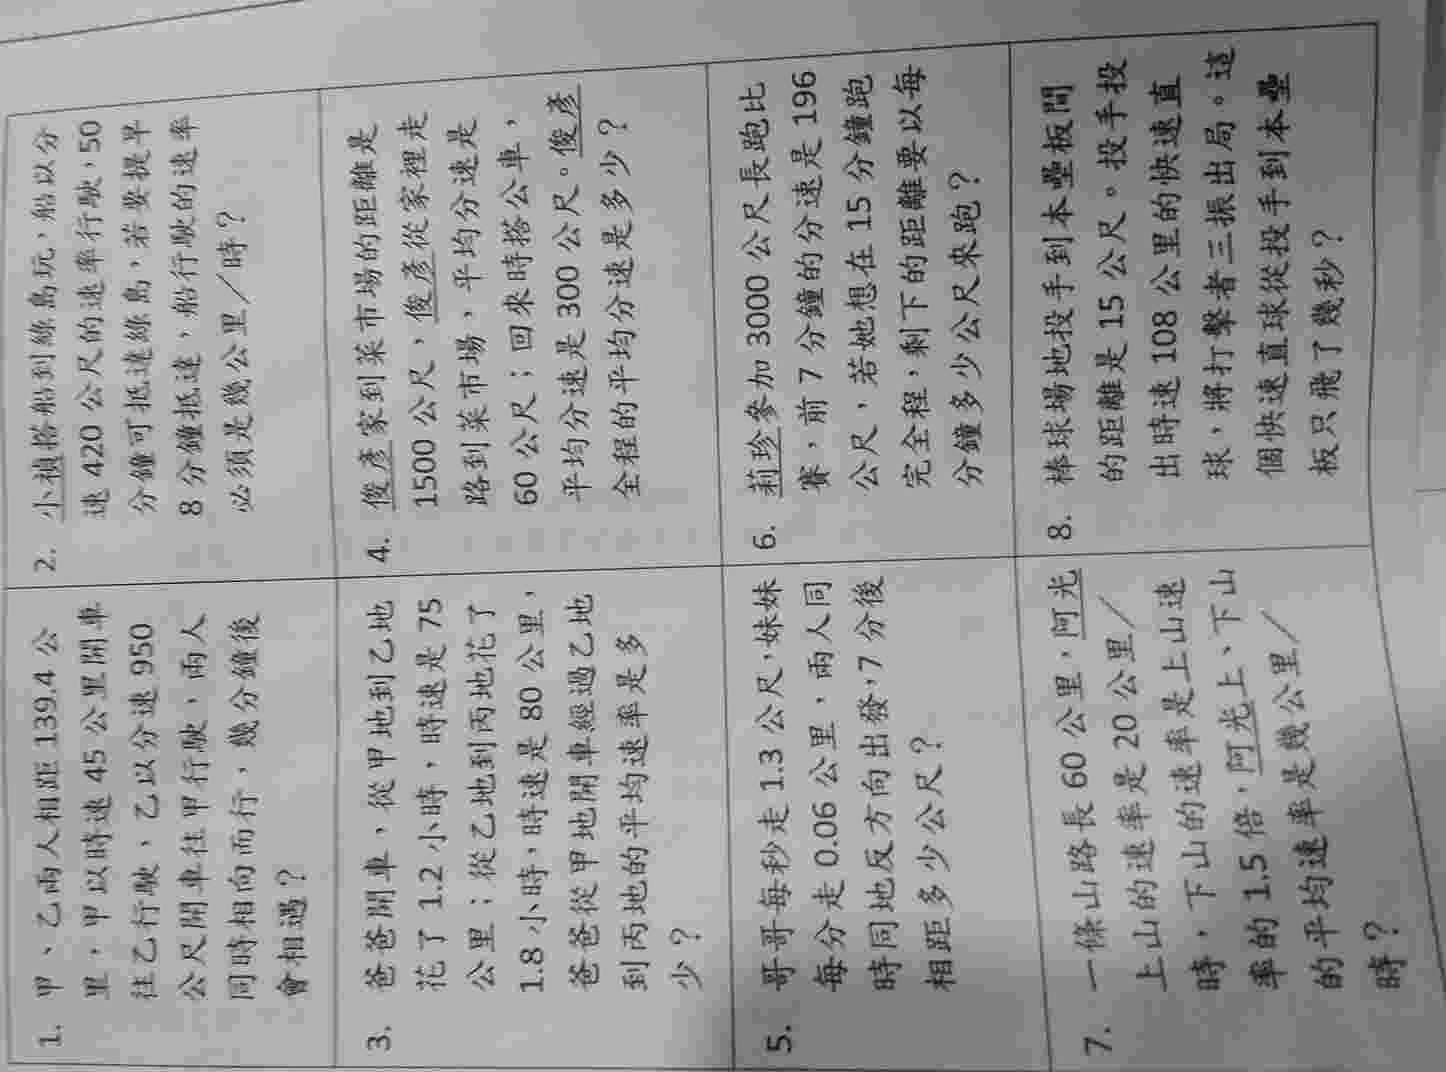 1. 甲、乙兩人相距 139.4 公
里，甲以時速 45 公里開車
往乙行駛、乙以分速 950
公尺開車往甲行駛，兩人
同時相向而行，幾分鐘後
會相遇？
2. 小禎搭船到綠島玩，船以分
速 420 公尺的速率行駛，50
分鐘可抵達綠島，若要提早
8 分鐘抵達，船行駛的速率
必須是幾公里／時？
3. 爸爸開車，從甲地到乙地
花了 1.2 小時，時速是 75
公里；從乙地到丙地花了
1.8 小時，時速是 80 公里，
爸爸從甲地開車經過乙地
到丙地的平均速率是多
少？
4. 俊彥家到菜市場的距離是
1500 公尺，俊彥從家裡走
路到菜市場，平均分速是
60 公尺；回來時搭公車，
平均分速是 300 公尺。俊彥
全程的平均分速是多少？
5. 哥哥每秒走 1.3 公尺，妹妹
每分走 0.06 公里，兩人同
時同地反方向出發，7 分後
相距多少公尺？
6. 莉珍參加 3000 公尺長跑比
賽，前 7 分鐘的分速是 196
公尺，若她想在 15 分鐘跑
完全程，剩下的距離要以每
分鐘多少公尺來跑？
7. 一條山路長 60 公里，阿光
上山的速率是 20 公里／
時，下山的速率是上山速
率的 1.5 倍，阿光上、下山
的平均速率是幾公里／
時？
8. 棒球場地投手到本壘板間
的距離是 15 公尺。投手投
出時速 108 公里的快速直
球，將打擊者三振出局。這
個快速直球從投手到本壘
板只飛了幾秒？